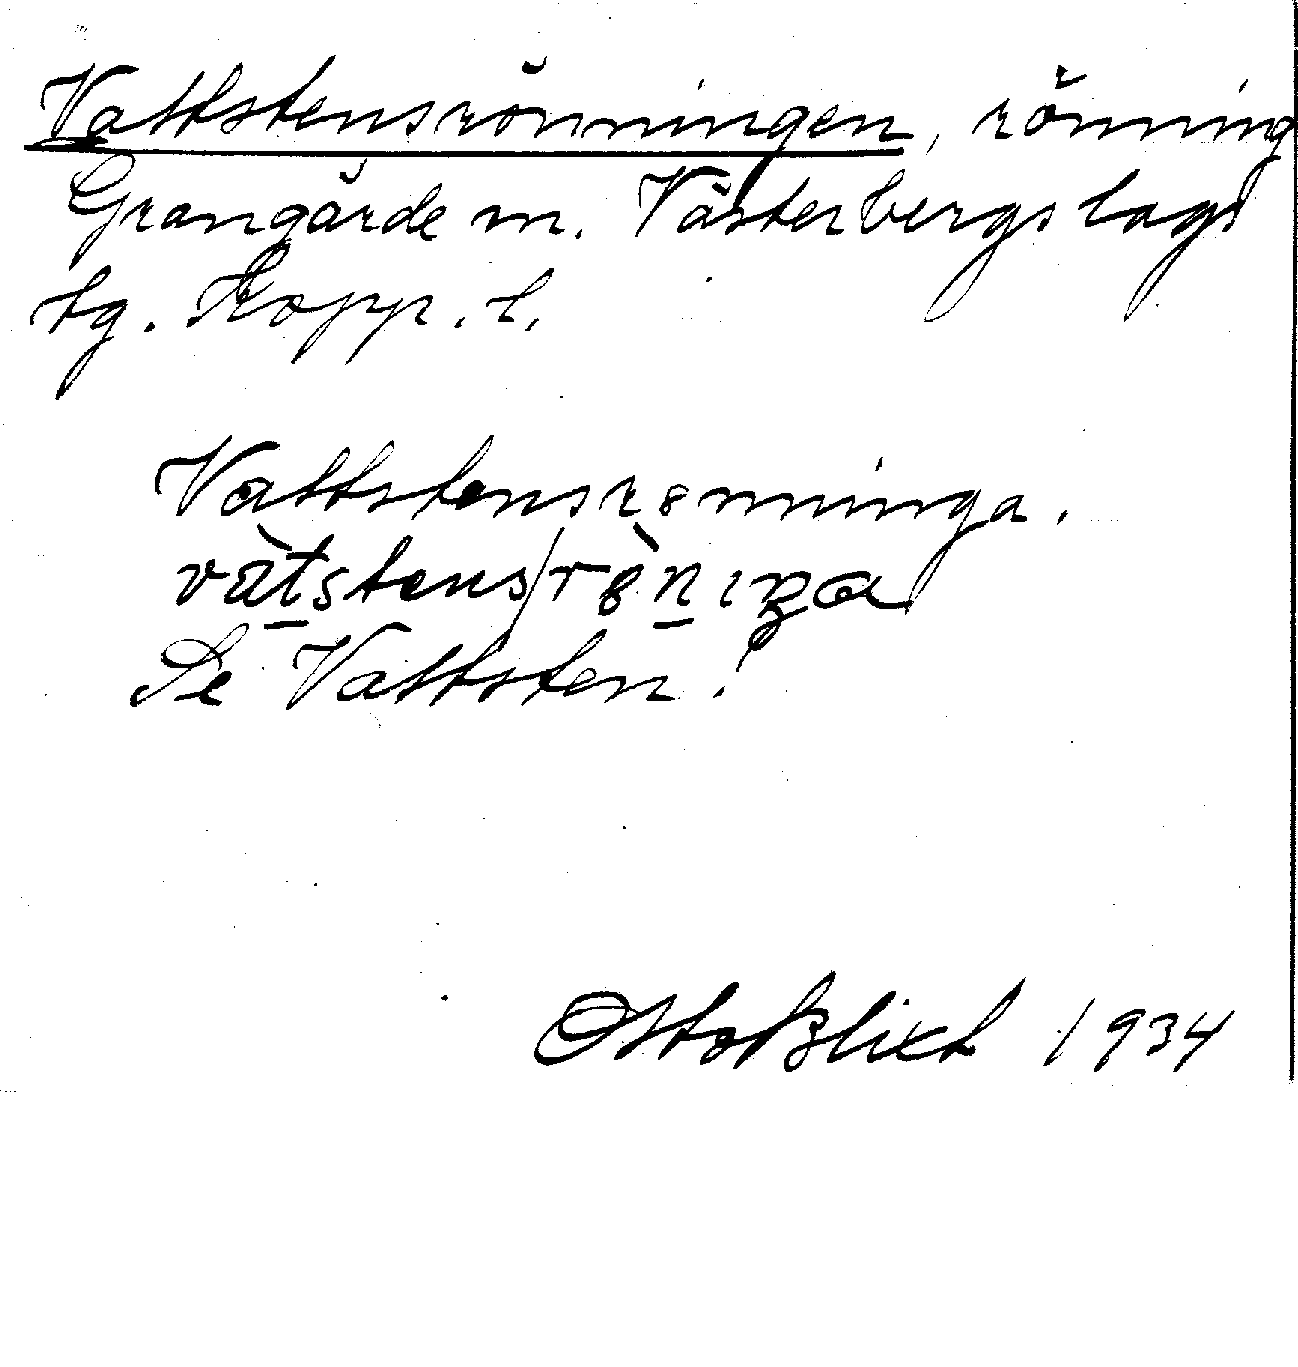 Vattstensrönningen, rönning
Grangärde sn. Västerbergslags
tg. Kopp. l.
Vattstensrönninga.
vàtstens/rö̀niŋa
Se Vattsten!
Otto Blixt 1934